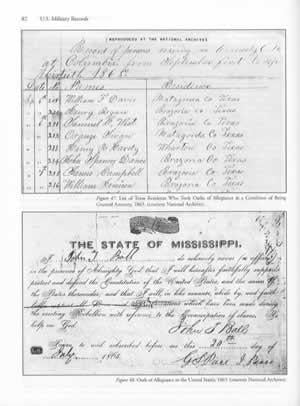 82 U.S. Military Records
REPRODUCED AT THE NATIONAL ARCHIVES
Record of persons
at Columbia from September first to
1865
Names Residence
Sep 6 William T Davis Matagorda Co Texas
Henry Brazoria Co Texas
Samuel Brazoria Co Texas
Orange Matagorda Co Texas
Henry W Hardy Wharton Co Texas
John Brazoria Co Texas
James Campbell Brazoria Co Texas
216 William Brazoria Co Texas
Figure 47. List of Texas Residents Who Took Oaths of Allegiance as a Condition of Being
Granted Amnesty, 1865. (courtesy National Archives).
THE STATE OF MISSISSIPPI,
I John T. Ball do solemnly swear (or affirm)
in the presence of Almighty God that I will henceforth faithfully support
protect and defend the Constitution of the United States, and the union of
the States thereunder, and that I will, in like manner, abide by, and faith-
fully support all laws and Proclamations which have been made during
the existing Rebellion with reference to the Emancipation of slaves. So
help me God.
John T Ball
Sworn to and subscribed before me this 20th day of
July 1865.
Figure 48. Oath of Allegiance to the United States, 1865 (courtesy National Archives).